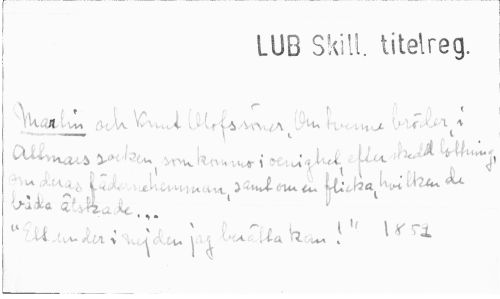 LUB Skill. titelreg.
Martin och Knut Olofssöner, Om tvenne bröder, i
Allmars socken, som kommo i oenighet, efter skedd lottning,
om deras fädernehemman, samt om en flicka, hvilken de
båda älskade...
"Ett under i nejden jag berätta kan!" 1851